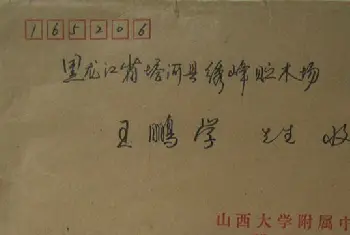 165206
黑龙江省塔河县绣峰贮木场
王鹏学 先生 收
山西大学附属中